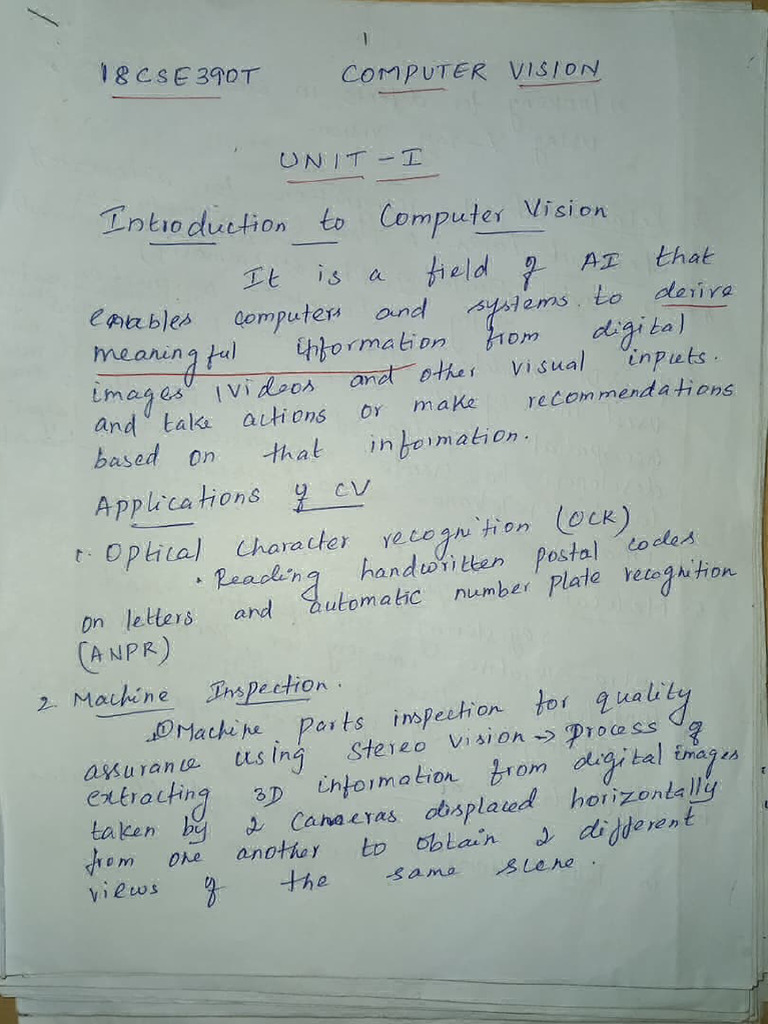 1
18CSE390T COMPUTER VISION
UNIT - I
Introduction to Computer Vision
It is a field of AI that
enables computers and systems to derive
meaningful information from digital
images, videos and other visual inputs.
and take actions or make recommendations
based on that information.
Applications of CV
1. Optical Character recognition (OCR)
• Reading handwritten postal codes
on letters and automatic number plate recognition
(ANPR)
2. Machine Inspection.
① Machine parts inspection for quality
assurance using stereo vision → process of
extracting 3D information from digital images
taken by 2 cameras displaced horizontally
from one another to obtain 2 different
views of the same scene.